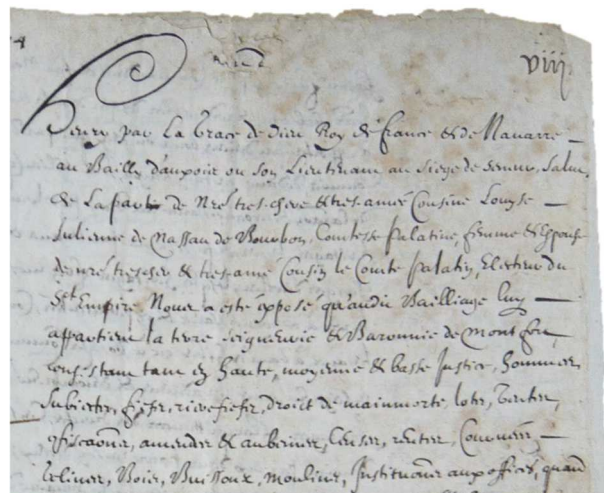 viij
Henry par La Grace de dieu Roy de france & de Navarre
au Bailly d'auxois ou son Lieutenant au Siege de Semur, Salut,
de La part de Nre tres chere & tres amée Cousine Louyse
Julienne de Nassau de Bourbon, Comtesse palatine, femme & Espouse
de nre tres cher & tres amé Cousin le Comte palatin, Electeur du
St Empire Nous a esté éxposé qu'audit Bailliage luy
appartient la terre seigneurie & Baronnie de Mont fort,
tam en haute, moyenne & basse Justice, hommes,
Subiectz, fiefz, rierefiefz, droict de mainmorte, lotz,
amendes & Censes, rentes,
Bois, Buissons, moulins, aux offices, quand